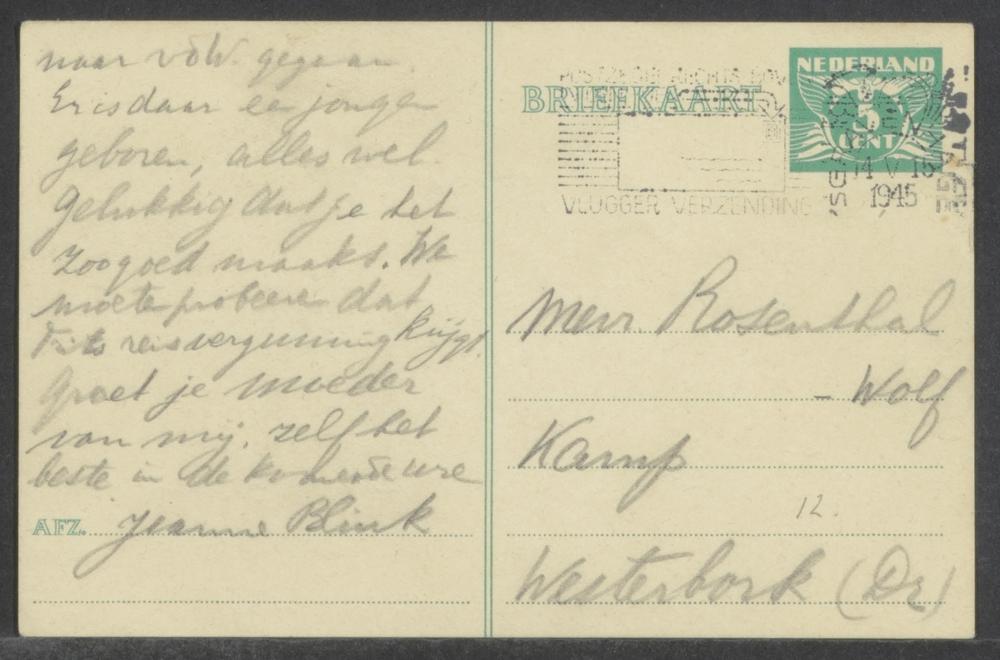 naar vdW. gegaan.
Er is daar een jongen
geboren, alles wel.
Gelukkig dat je het
zoo goed maakt. We
moeten proberen dat
Frits reisvergunning krijgt.
Groet je moeder
van mij. zelf het
beste in de komende
AFZ. Jeanne Blink
BRIEFKAART
NEDERLAND
5
CENT
POSTZEGEL RECHTS BOVEN
VLUGGER VERZENDING
'SGRAVENHAGE
14 V 18
1945
Mevr. Rosenthal
- Wolf
Kamp
12.
Westerbork (Dr)